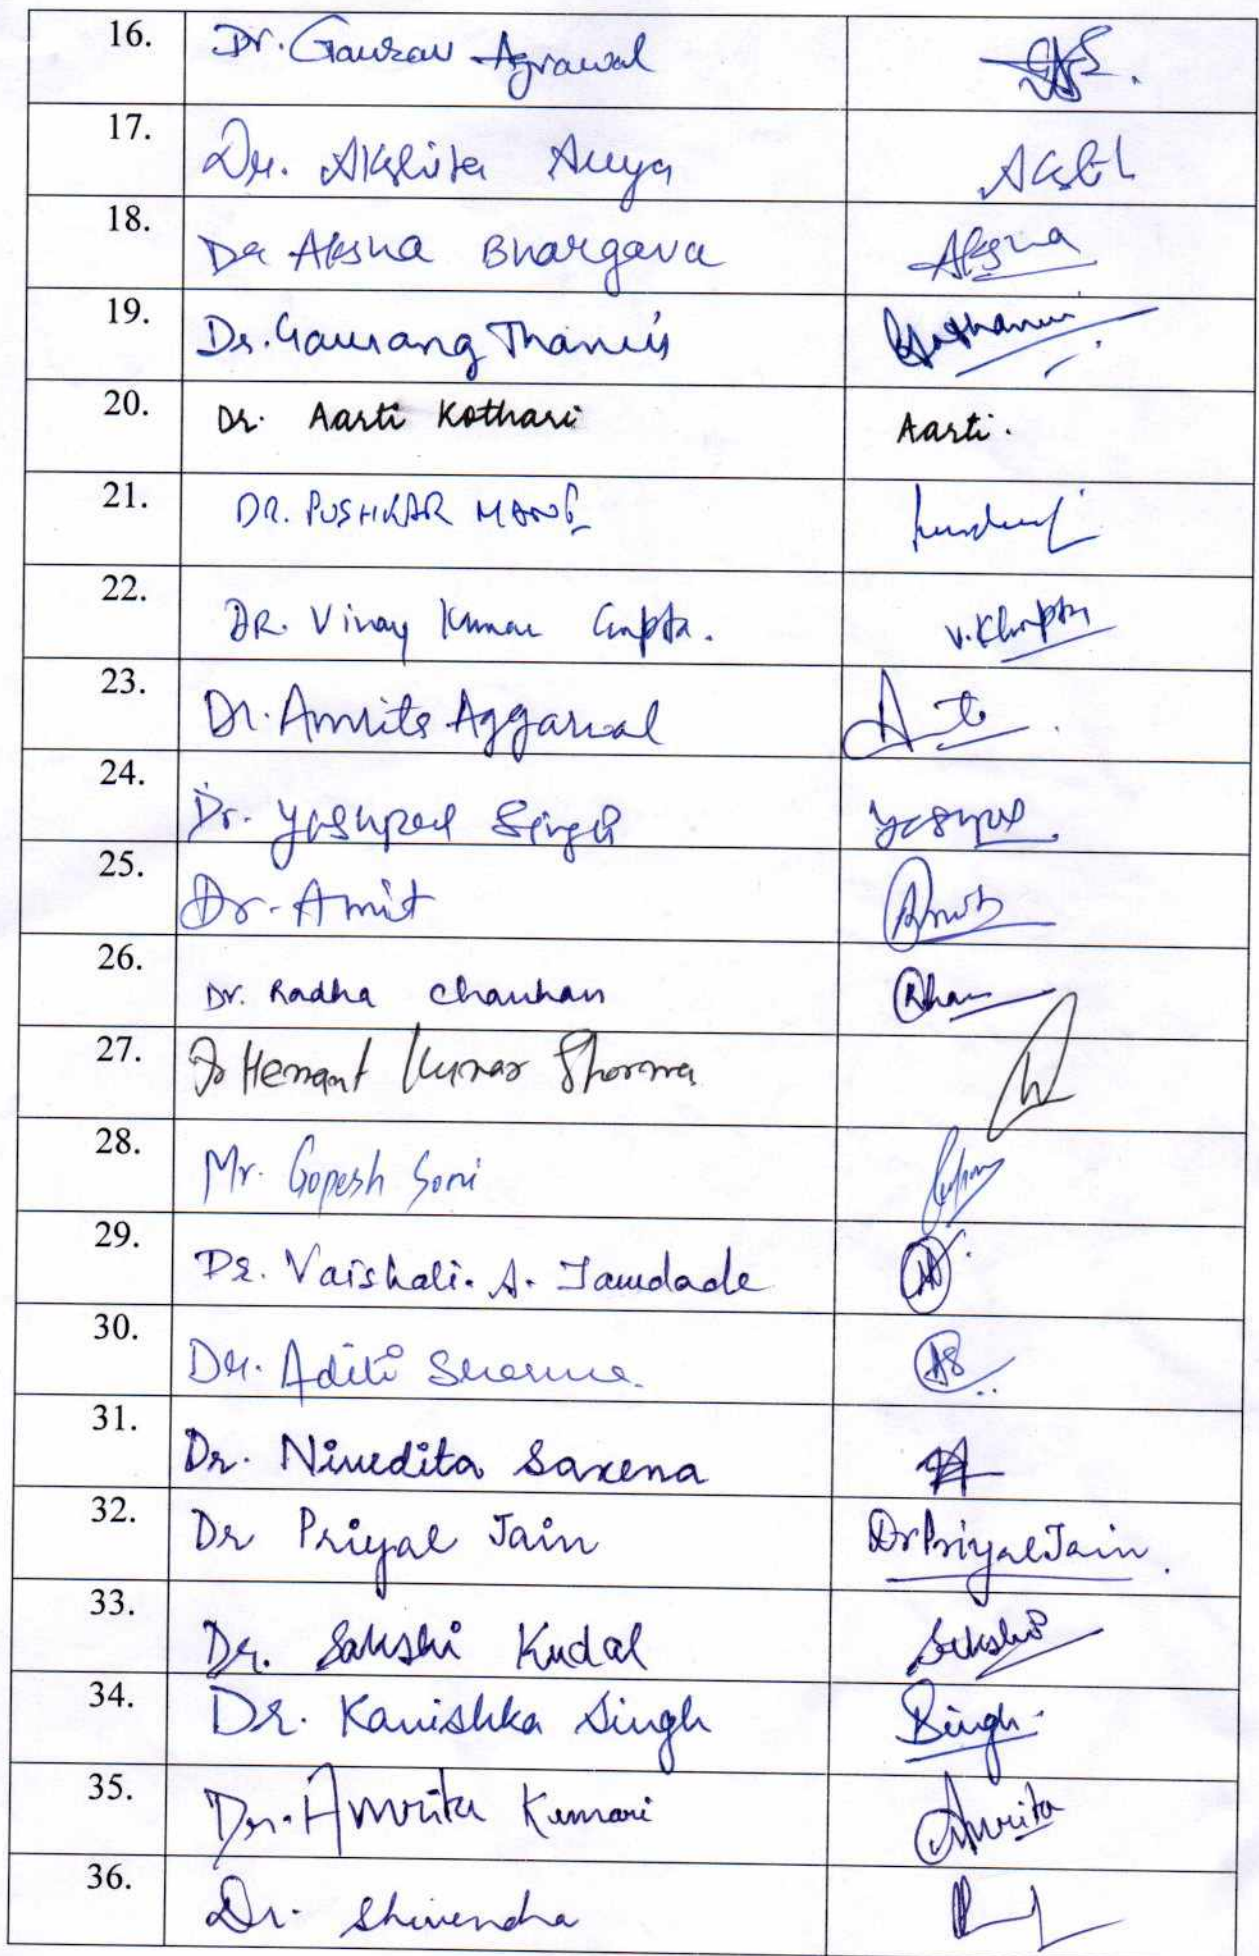 16. Dr. Gaurav Agrawal
17. Dr. Akshita Arya Akshi
18. Dr Aksha Bhargava Aksha
19. Dr. Gaurang Thanvi Gathanvi
20. Dr. Aarti Kothari Aarti.
21. DR. PUSHKAR
22. DR. Vinay Kumar Gupta. V.KGupta
23. Dr. Amrita Aggarwal
24. Dr. Yashpal Singh Yashpal
25. Dr. Amit Amit
26. Dr. Radha Chauhan
27. Dr Hemant Kumar Sharma
28. Mr. Gopesh Soni
29. Dr. Vaishali. A. Jamdade
30. Dr. Aditi Sharma. AS
31. Dr. Nivedita Saxena
32. Dr Priyal Jain Dr Priyal Jain.
33. Dr. Sakshi Kudal Sakshi
34. Dr. Kanishka Singh Singh
35. Dr. Amrita Kumari Amrita
36. Dr. Shivendra